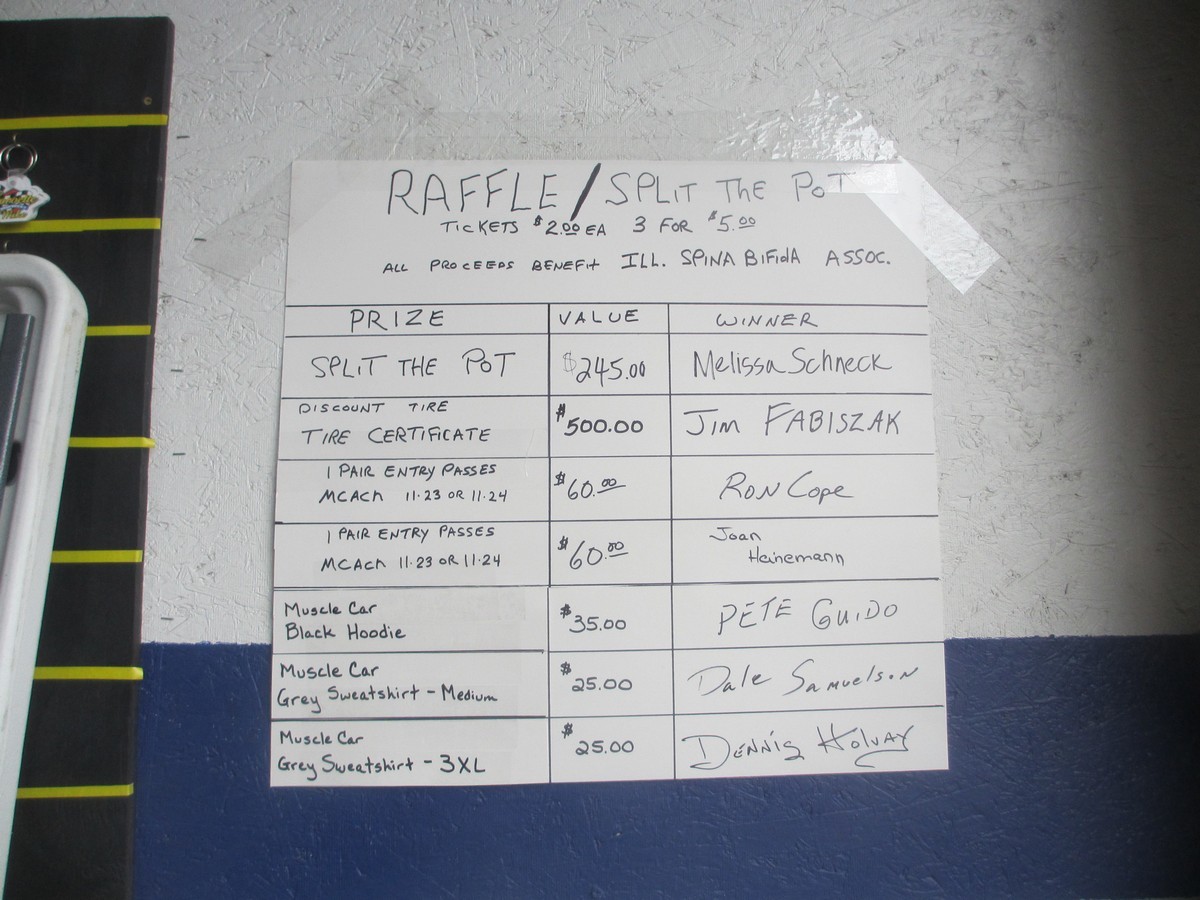 RAFFLE / SPLIT THE POT
TICKETS $2.00 EA 3 FOR $5.00
ALL PROCEEDS BENEFIT ILL. SPINA BIFIDA ASSOC.
PRIZE VALUE WINNER
SPLIT THE POT $245.00 Melissa Schneck
DISCOUNT TIRE
TIRE CERTIFICATE $500.00 Jim FABISZAK
1 PAIR ENTRY PASSES
MCACN 11·23 OR 11·24 $60.00 RON Cope
1 PAIR ENTRY PASSES
MCACN 11·23 OR 11·24 $60.00 Joan
Heinemann
Muscle Car
Black Hoodie $35.00 PETE GUIDO
Muscle Car
Grey Sweatshirt - Medium $25.00 Dale Samuelson
Muscle Car
Grey Sweatshirt - 3XL $25.00 DENNIS Holvay